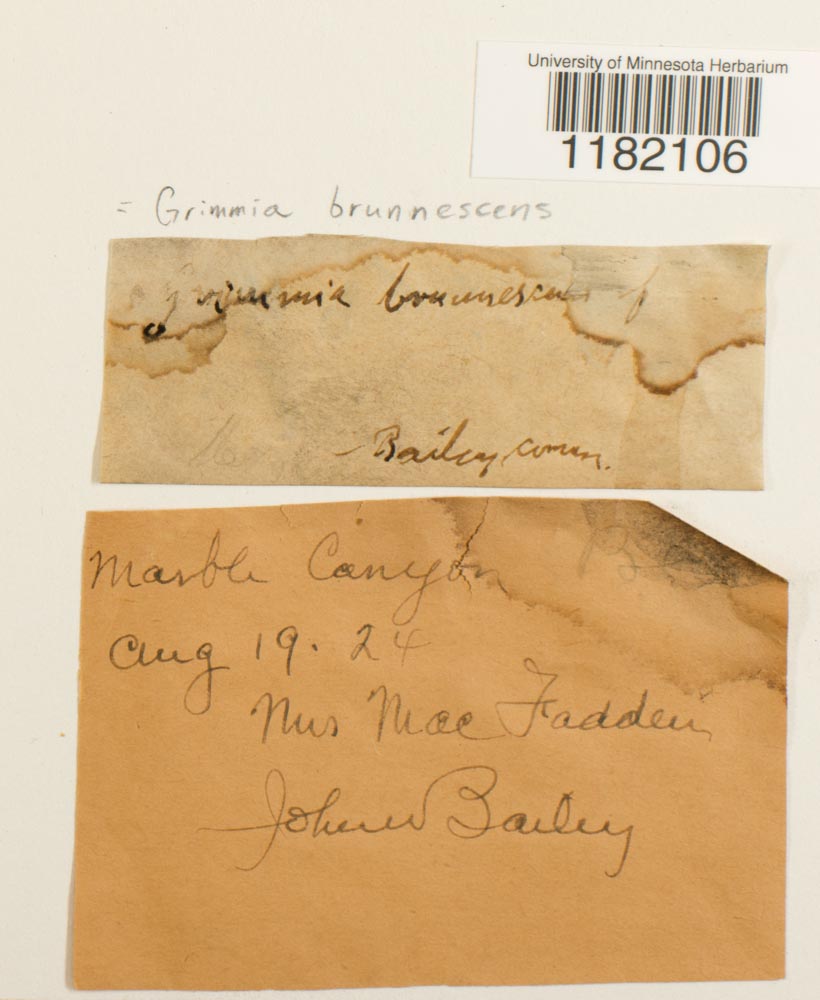 University of Minnesota Herbarium
1182106
= Grimmia brunnescens
Grimmia brunnescens
- Bailey comm.
Marble Canyon B
Aug 19. 24
Mrs Mac Fadden
John W Bailey